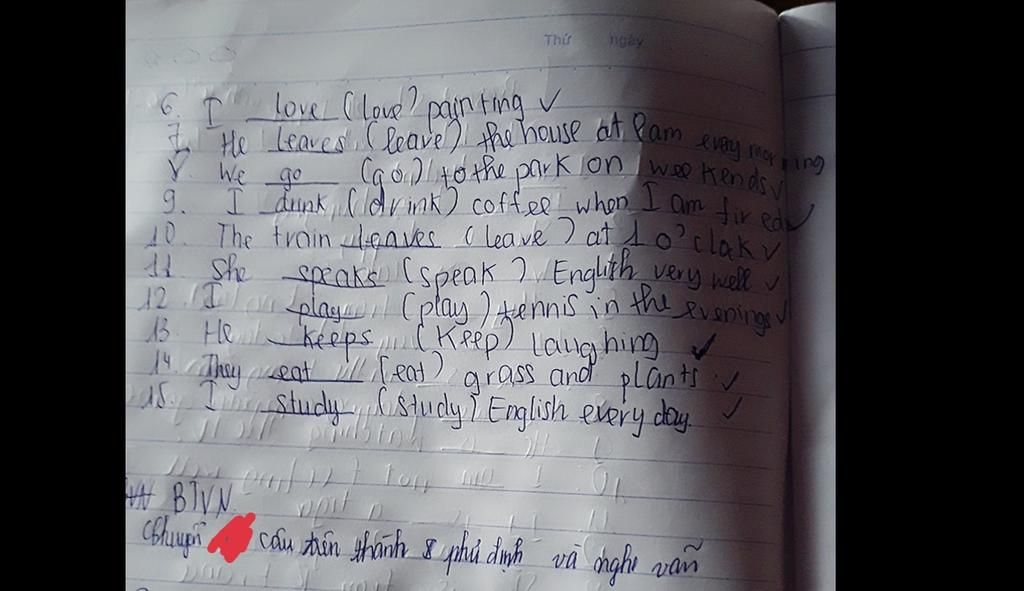 Thứ ngày
6. I love (love) painting ✓
7. He leaves (leave) the house at 8am every morning
8. We go (go) to the park on weekends ✓
9. I drink (drink) coffee when I am fired ✓
10. The train leaves (leave) at 10'clak ✓
11. She speaks (speak) English very well ✓
12. I play (play) tennis in the evenings ✓
13. He keeps (Keep) laughing ✓
14. They eat (eat) grass and plants ✓
15. I study (study) English every day. ✓
BTVN
Chuyển câu trên thành phủ định và nghi vấn